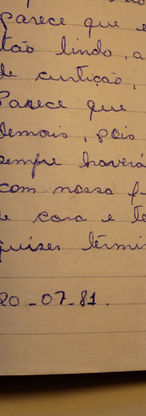 Parece que e
tão lindo, a
de curtição,
Parece que
demais, pois
sempre haverá
com nossa f
e cara e te
quiser térmi
20-07-81.